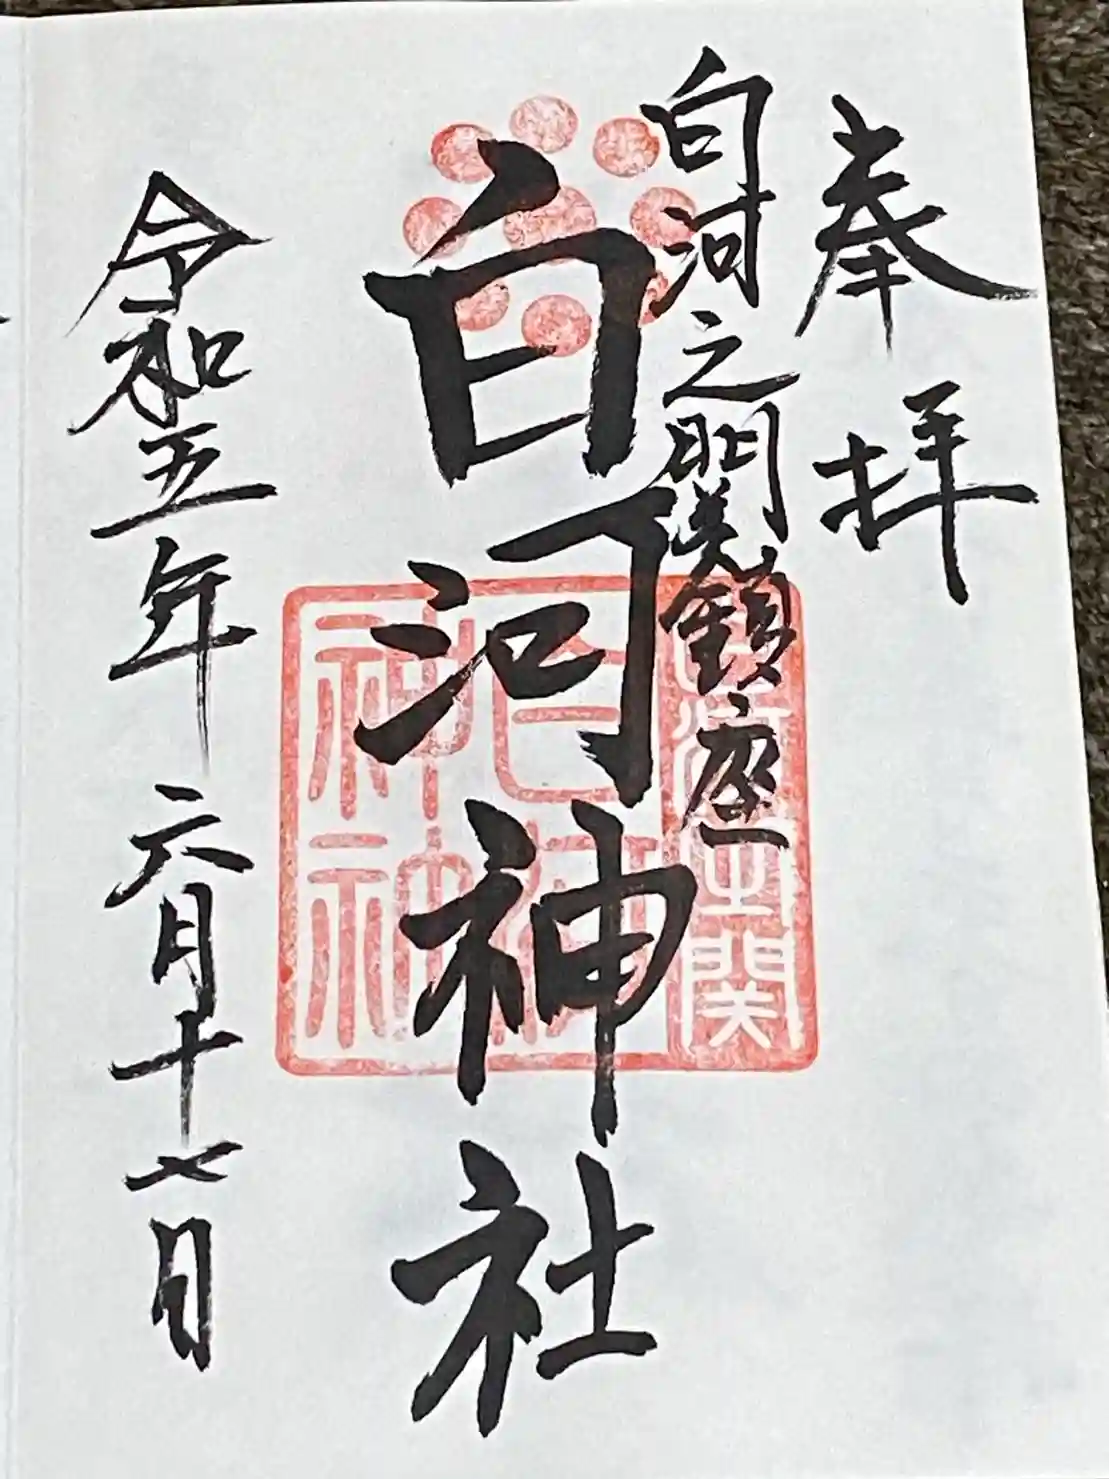 奉拝
白河之関鎮座
白河神社
令和五年六月十七日
白河之関